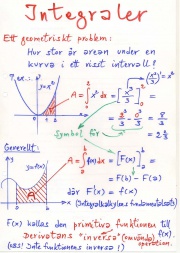 Integraler
Ett geometriskt problem:
Hur stor är arean under en
kurva i ett visst intervall?
T.ex.: y
y=x²
(x³/3)' = x²
A = ∫₀² x² dx = [x³/3]₀² =
= 2³/3 − 0³/3 = 8/3
Symbol för
Generellt:
y=f(x)
A
A = ∫ₐᵇ f(x) dx = [F(x)]ₐᵇ =
= F(b) − F(a)
där F'(x) = f(x)
(Integralkalkylens fundamentalsats)
F(x) kallas den primitiva funktionen till f(x).
Derivatans "invers" (omvända) operation.
(OBS! Inte funktionens invers!)